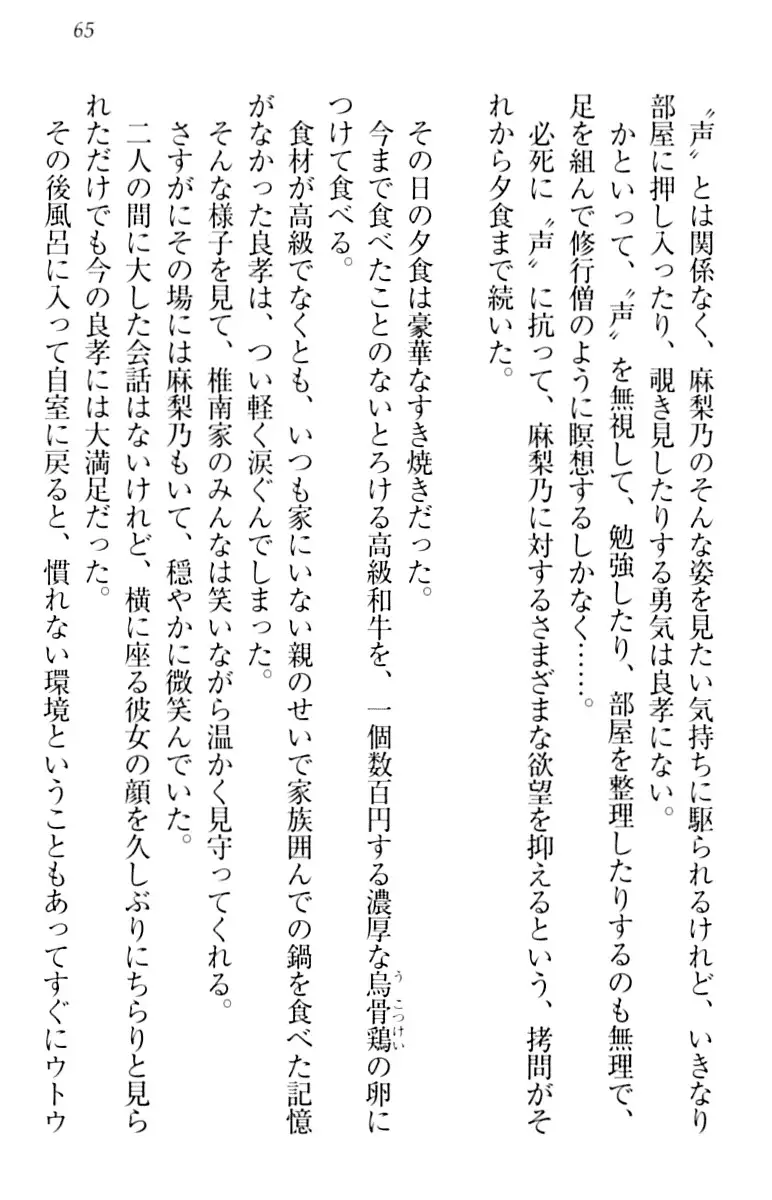 65
〝声〟とは関係なく、麻梨乃のそんな姿を見たい気持ちに駆られるけれど、いきなり
部屋に押し入ったり、覗き見したりする勇気は良孝にない。
かといって、〝声〟を無視して、勉強したり、部屋を整理したりするのも無理で、
足を組んで修行僧のように瞑想するしかなく……。
必死に〝声〟に抗って、麻梨乃に対するさまざまな欲望を抑えるという、拷問がそ
れから夕食まで続いた。
その日の夕食は豪華なすき焼きだった。
今まで食べたことのないとろける高級和牛を、一個数百円する濃厚な烏骨鶏の卵に
うこつけい
つけて食べる。
食材が高級でなくとも、いつも家にいない親のせいで家族囲んでの鍋を食べた記憶
がなかった良孝は、つい軽く涙ぐんでしまった。
そんな様子を見て、椎南家のみんなは笑いながら温かく見守ってくれる。
さすがにその場には麻梨乃もいて、穏やかに微笑んでいた。
二人の間に大した会話はないけれど、横に座る彼女の顔を久しぶりにちらりと見ら
れただけでも今の良孝には大満足だった。
その後風呂に入って自室に戻ると、慣れない環境ということもあってすぐにウトウ